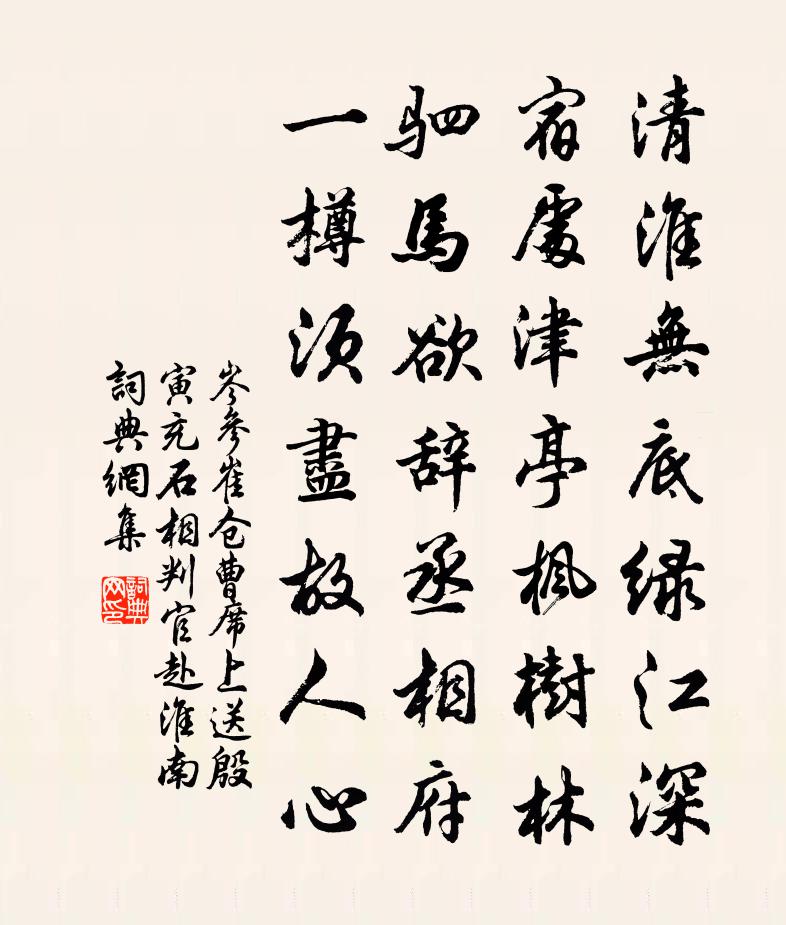 清淮無底緑江深
宿處津亭楓樹林
駟馬欲辞丞相府
一樽須盡故人心
岑參崔仓曹席上送殷
寅充石相判官赴淮南
詞典網集
詞典
网印